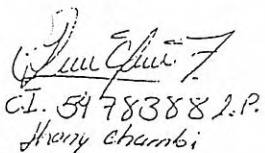 C.I. 5478388 L.P.
Jhony Chambi